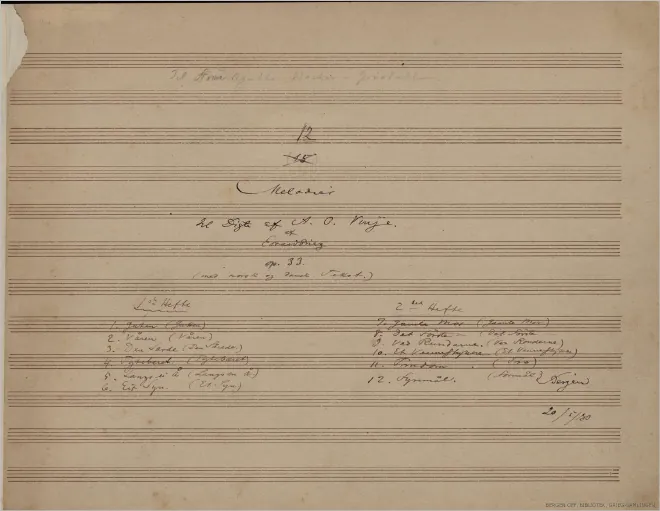 Til
12
15
Melodier
til Digte af A. O. Vinje.
af
Edvard Grieg
op. 33.
(med norsk og dansk Tekst.)
1ste Hefte
1. Guten (Guten)
2. Våren (Våren)
3. Den
4. Tytebæret (Tytebæret)
5. Langs ei Å (Langs en Å)
6. Eit Syn. (Et Syn)
2det Hefte
7. Gamle Mor (Gamle Mor)
8. Det Første (Det Første)
9. Ved Rundarne. (Ved Ronderne)
10. Et Vennestykke (Et Vennestykke)
11. Trudom. (Tro)
12. Fyremål. Bergen
20/5/80
BERGEN OFF. BIBLIOTEK, GRIEG-SAMLINGEN